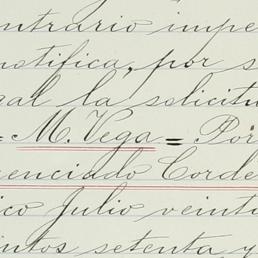 ntrario impe
notifica, por s
gal la solicitu
= M. Vega = Por
cenciado Corde
ico Julio veinti
ientos setenta y